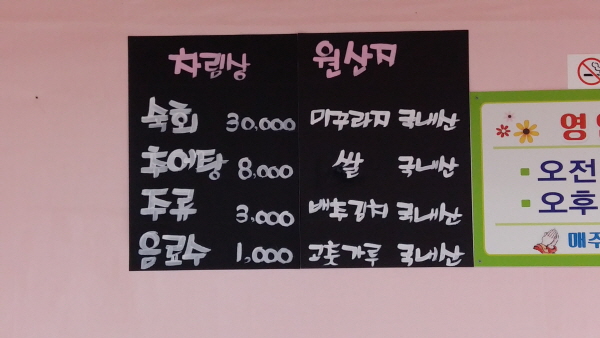 차림상
숙회 30,000
추어탕 8,000
주류 3,000
음료수 1,000
원산지
미꾸라지 국내산
쌀 국내산
배추김치 국내산
고춧가루 국내산
오전
오후
매주